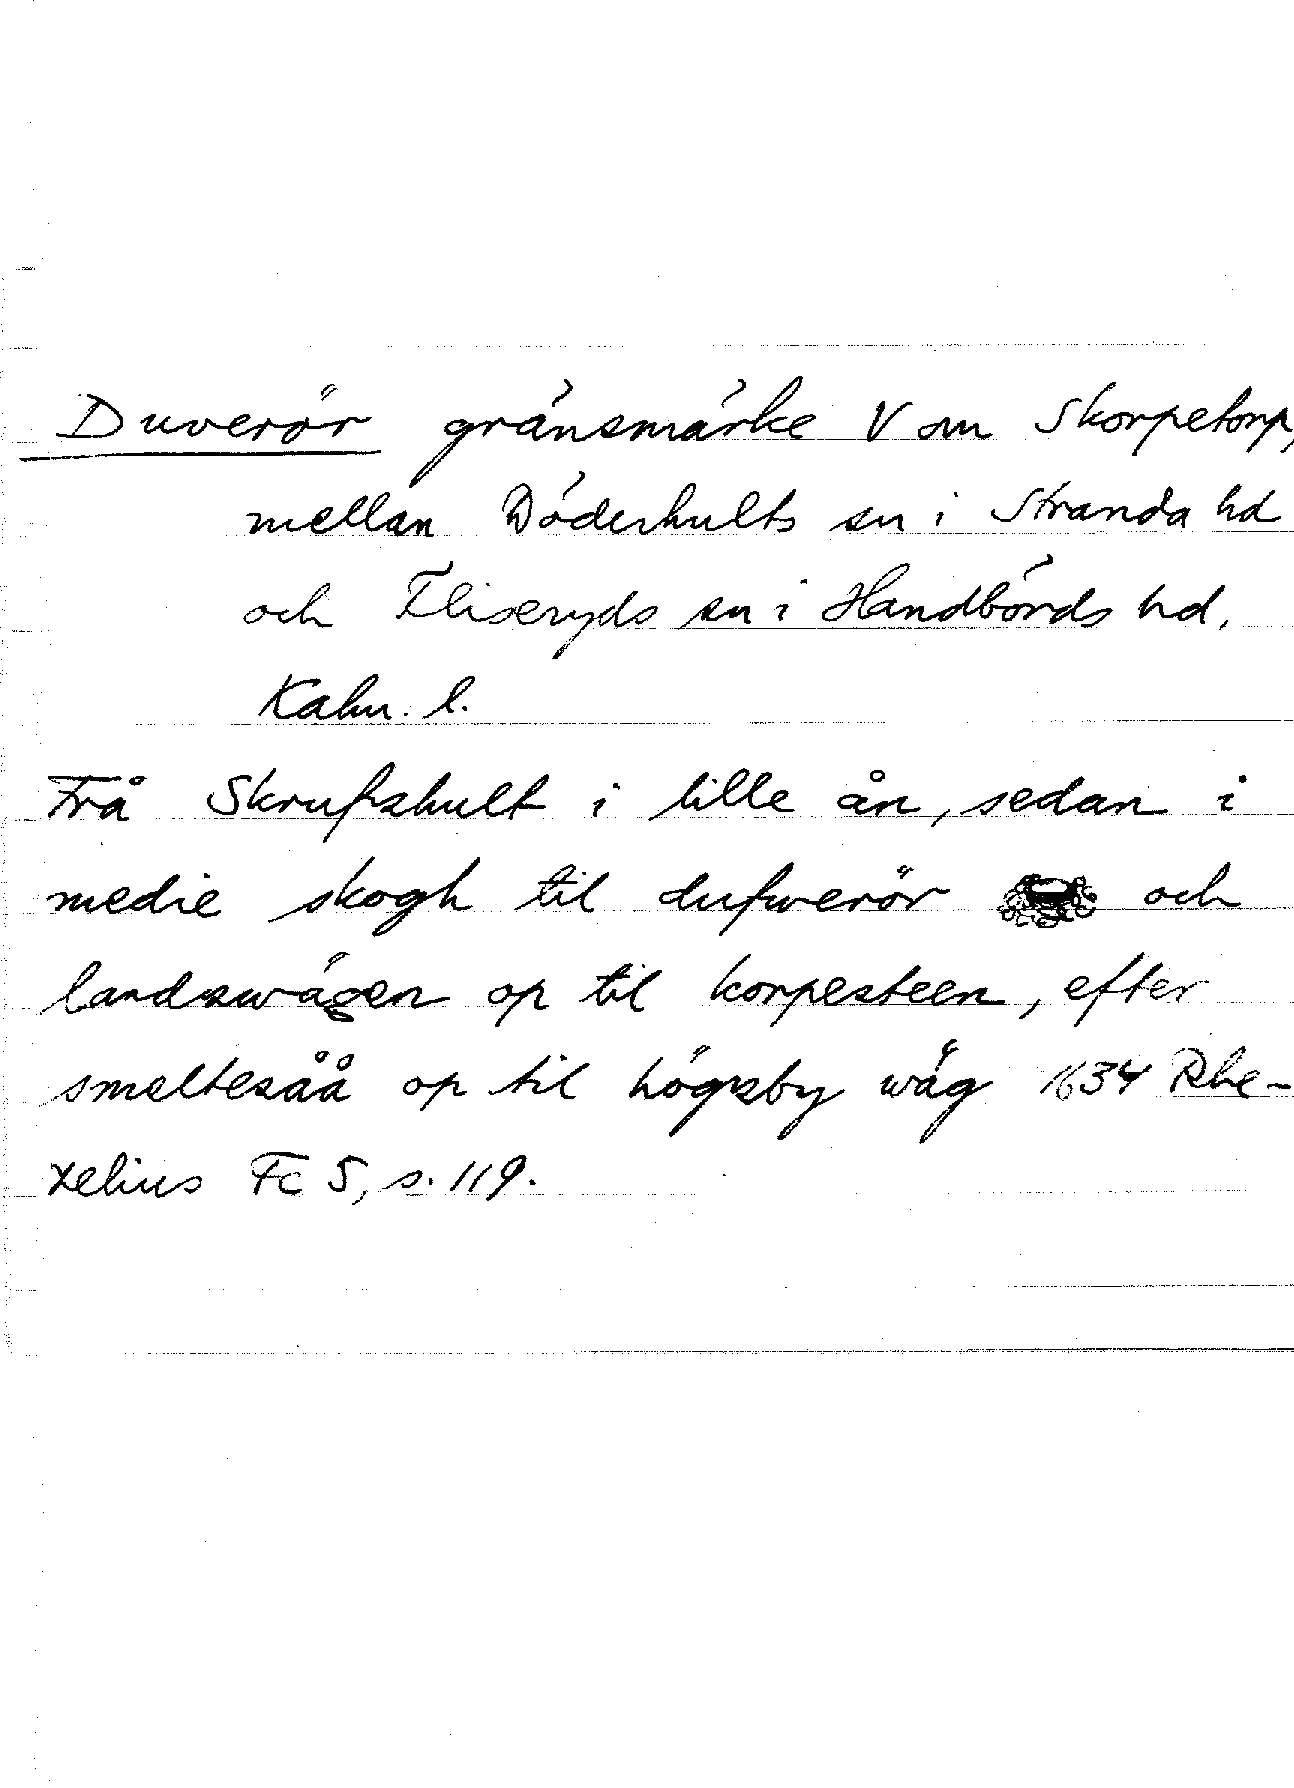 Duverör gränsmärke V om Skorpetorp,
mellan Döderhults sn i Stranda hd
och Fliseryds sn i Handbörds hd.
Kalm. l.
Frå Skrufshult i lille ån, sedan i
medie skogh til dufwerör och
landzwägen op til korpesteen, efter
smeltesåå op til högsby wäg 1634 Rhe-
zelius Fc 5, s. 119.